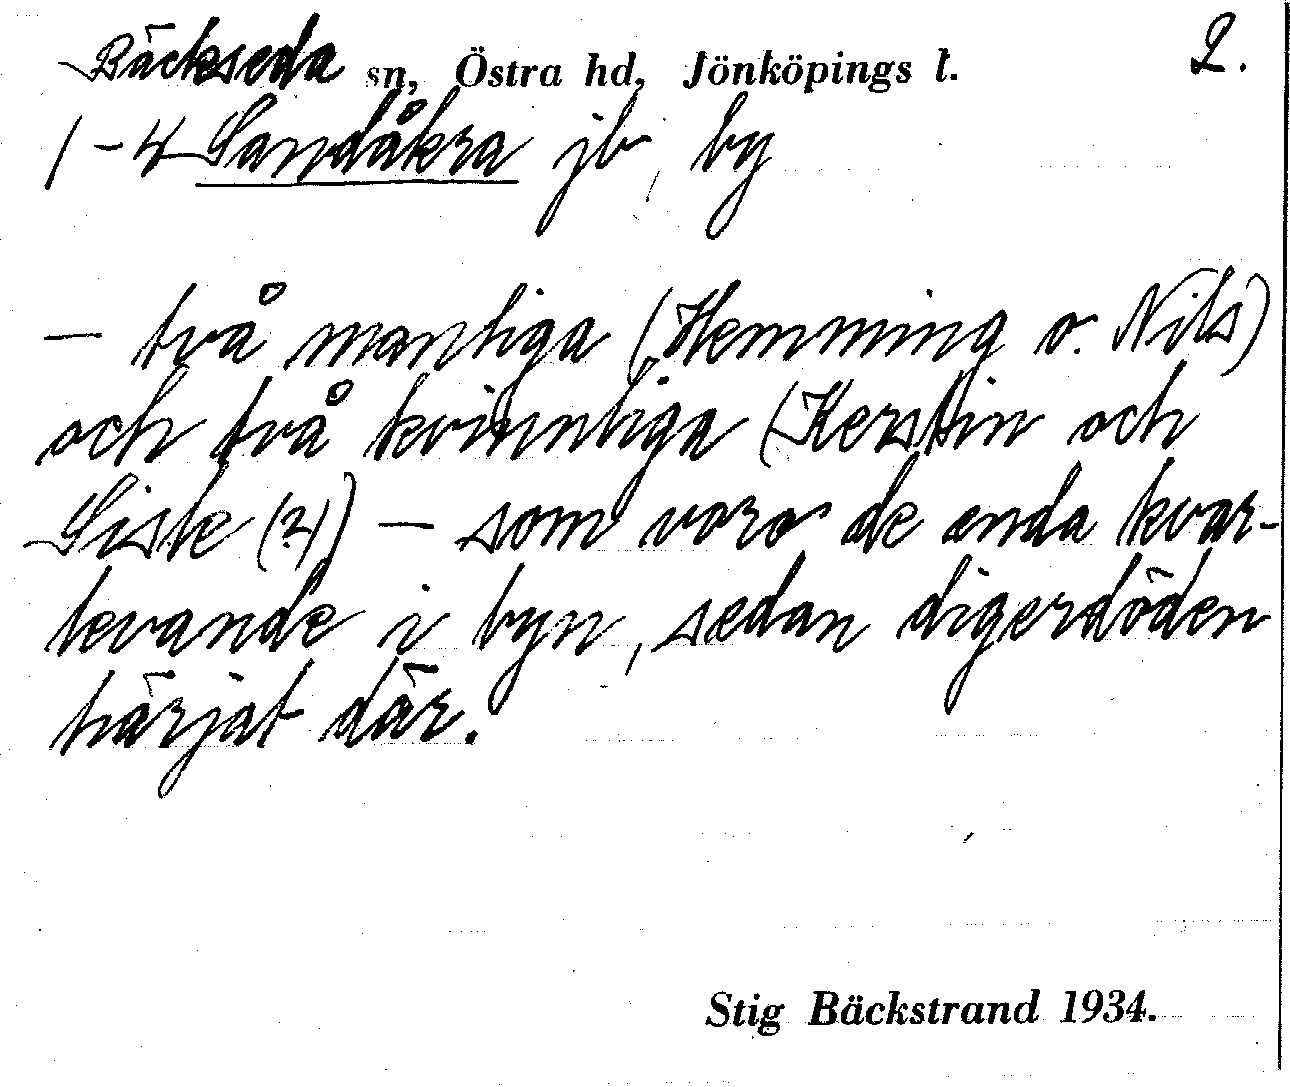 Bäckseda sn, Östra hd, Jönköpings l. 2.
1-4 Sandåkra jb, by
— två manliga (Hemming o. Nils)
och två kvinnliga (Kerstin och
Siske (?)) — som voro de enda kvar-
levande i byn, sedan digerdöden
härjat där.
Stig Bäckstrand 1934.